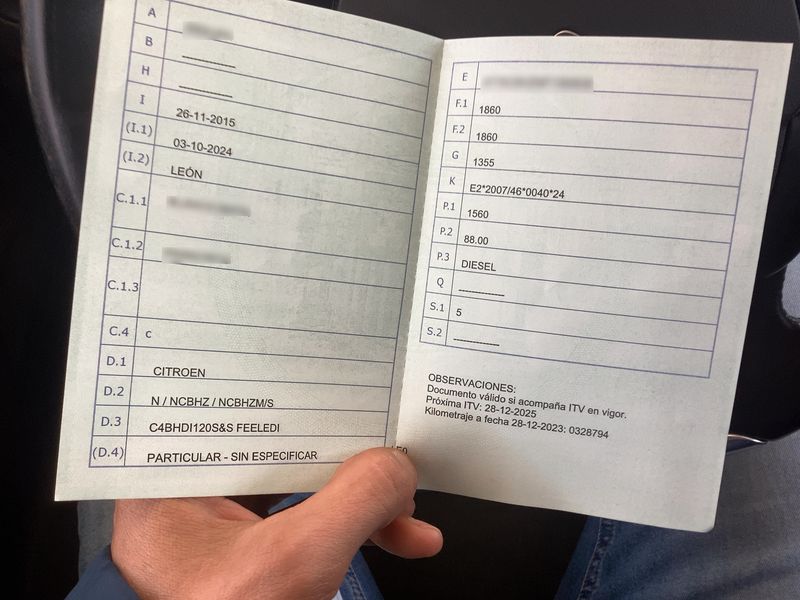 A
B
----------------
H
----------------
I 26-11-2015
(I.1) 03-10-2024
(I.2) LEÓN
C.1.1
C.1.2
C.1.3
C.4 c
D.1 CITROEN
D.2 N / NCBHZ / NCBHZM/S
D.3 C4BHDI120S&S FEELEDI
(D.4) PARTICULAR - SIN ESPECIFICAR
E
F.1 1860
F.2 1860
G 1355
K E2*2007/46*0040*24
P.1 1560
P.2 88.00
P.3 DIESEL
Q ----------------
S.1 5
S.2 ----------------
OBSERVACIONES:
Documento válido si acompaña ITV en vigor.
Próxima ITV: 28-12-2025
Kilometraje a fecha 28-12-2023: 0328794